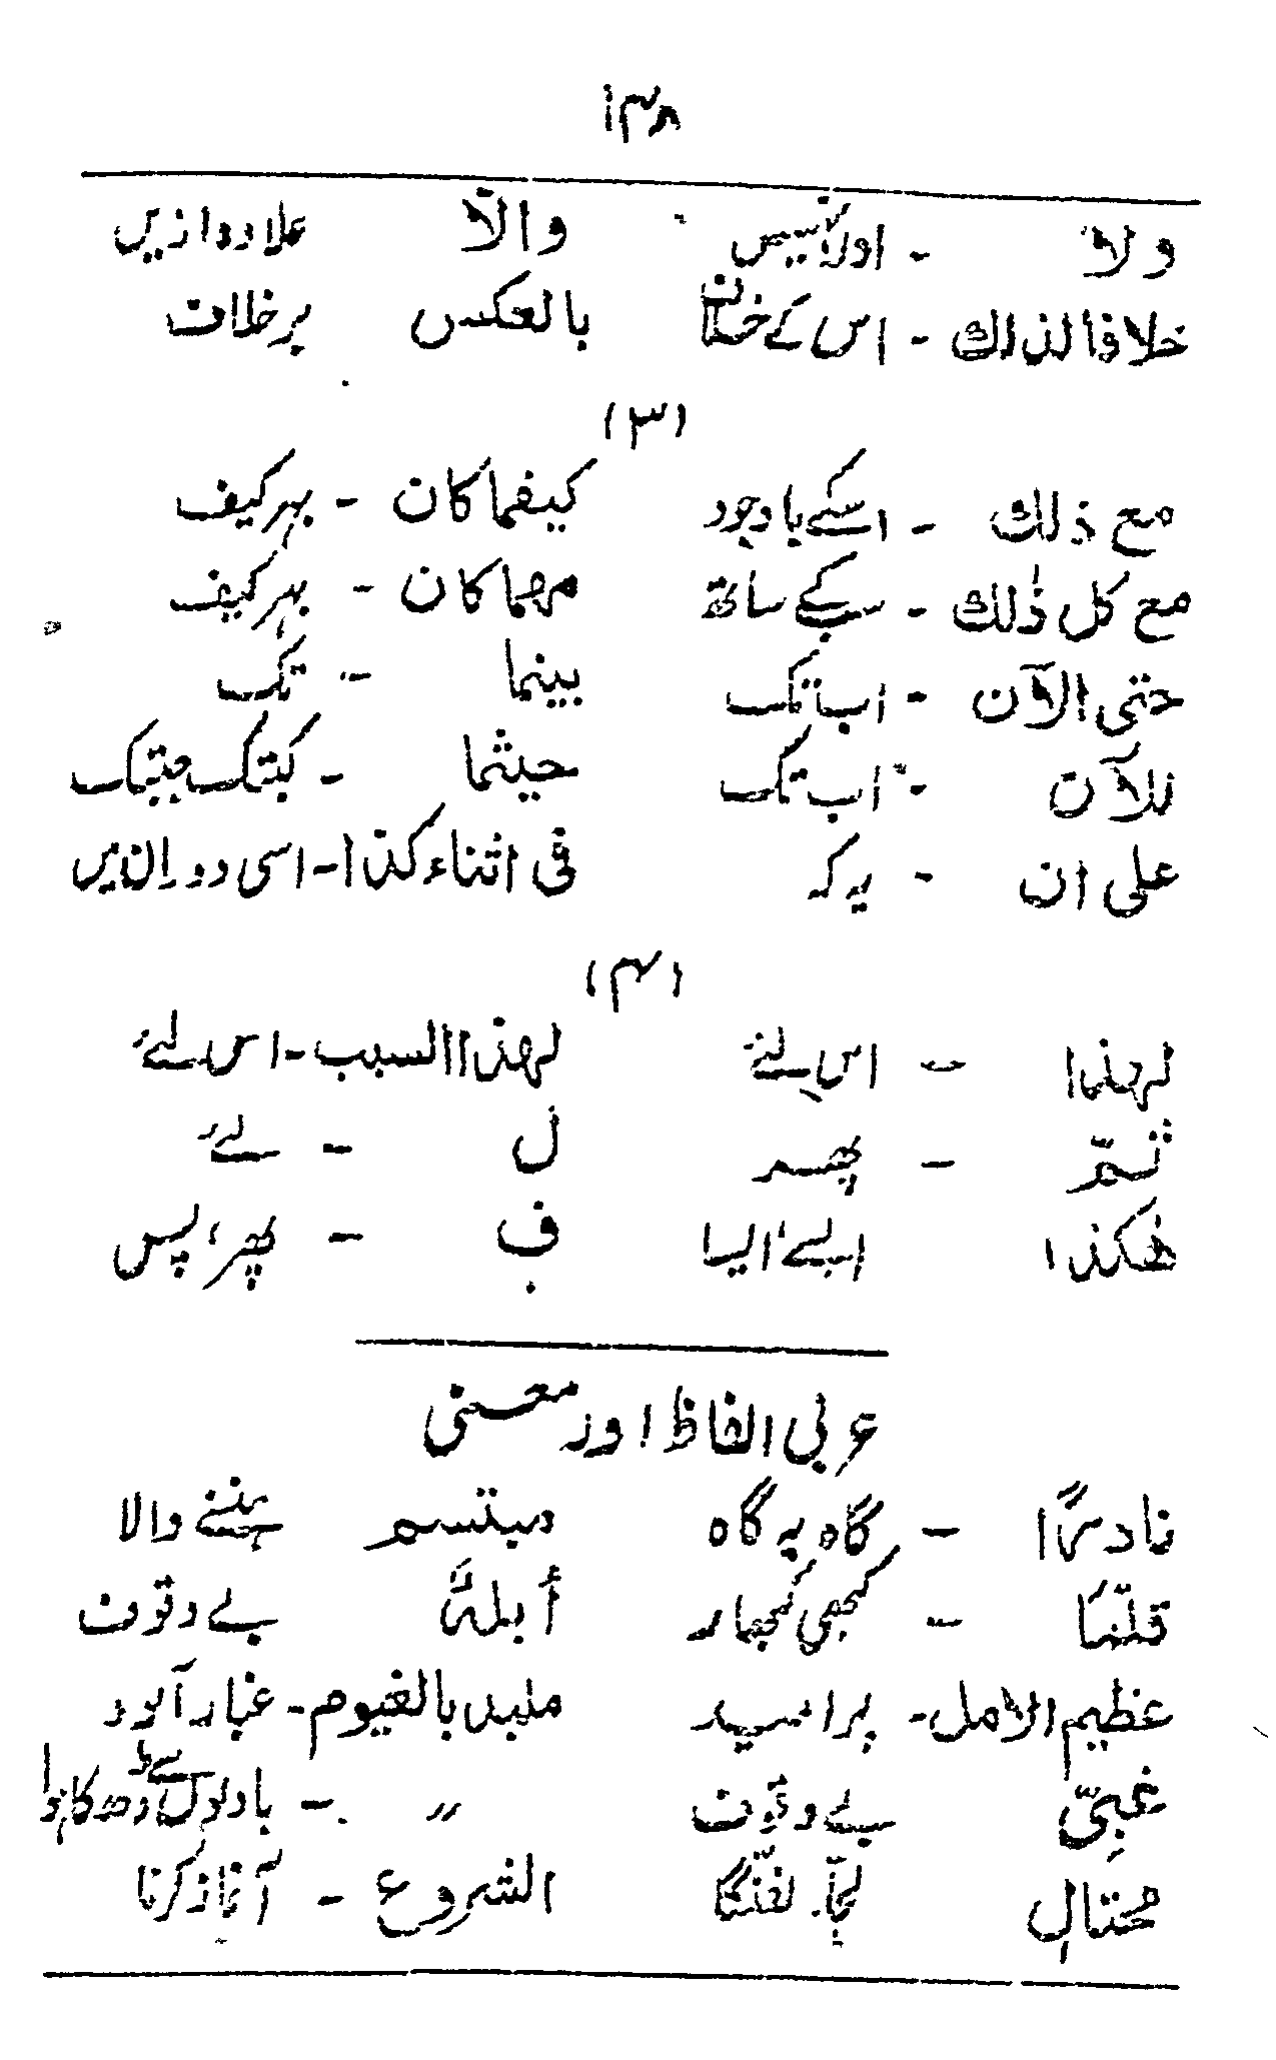 ۱۴۸
ولا - اور نہیں والّا علاوہ ازیں
خلافا لذلك - اس کے خلاف بالعكس برخلاف
(۳)
مع ذلك - اسکے باوجود كيفما كان - بہرکیف
مع كل ذٰلك - سب کے ساتھ مهما كان - بہرکیف
حتى الآن - اب تک بينما - تک
للآن - اب تک حيثما - کبتک جبتک
على ان - یہ کہ فى اثناء كذا - اسی دوران میں
(۴)
لهذا - اس لئے لهذا السبب - اس لئے
ثمّ - پھر ل - لئے
هٰكذا ایسے، ایسا ف - پھر، پس
عربی الفاظ اور معنی
نادرًا - گاہ بہ گاہ مبتسم ہنسنے والا
قلّما - کبھی کبھار أبلهٌ بے وقوف
عظيم الامل - پر امید ملبد بالغيوم - غبار آلود
غبىّ بے وقوف 〃 - بادلوں سے ڈھکا ہوا
محتال لچّا، لفنگا الشروع - آغاز کرنا